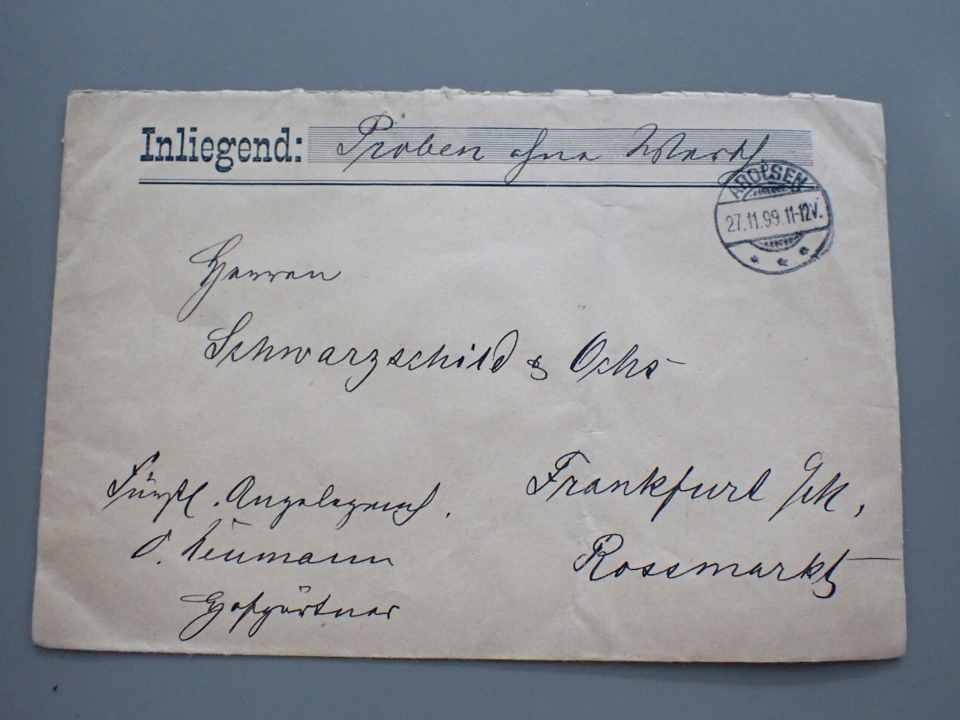 Inliegend: Proben ohne Werth
AROLSEN
27.11.99.11-12V.
Herren
Schwarzschild & Ochs
Frankfurt
Rossmarkt
Fürstl. Angelegenh.
Neumann
Hofgärtner